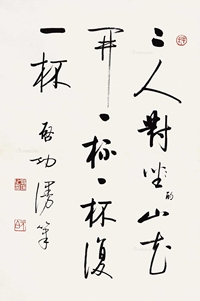 二人對坐酌山花
開一杯一杯復
一杯
啓功漫筆